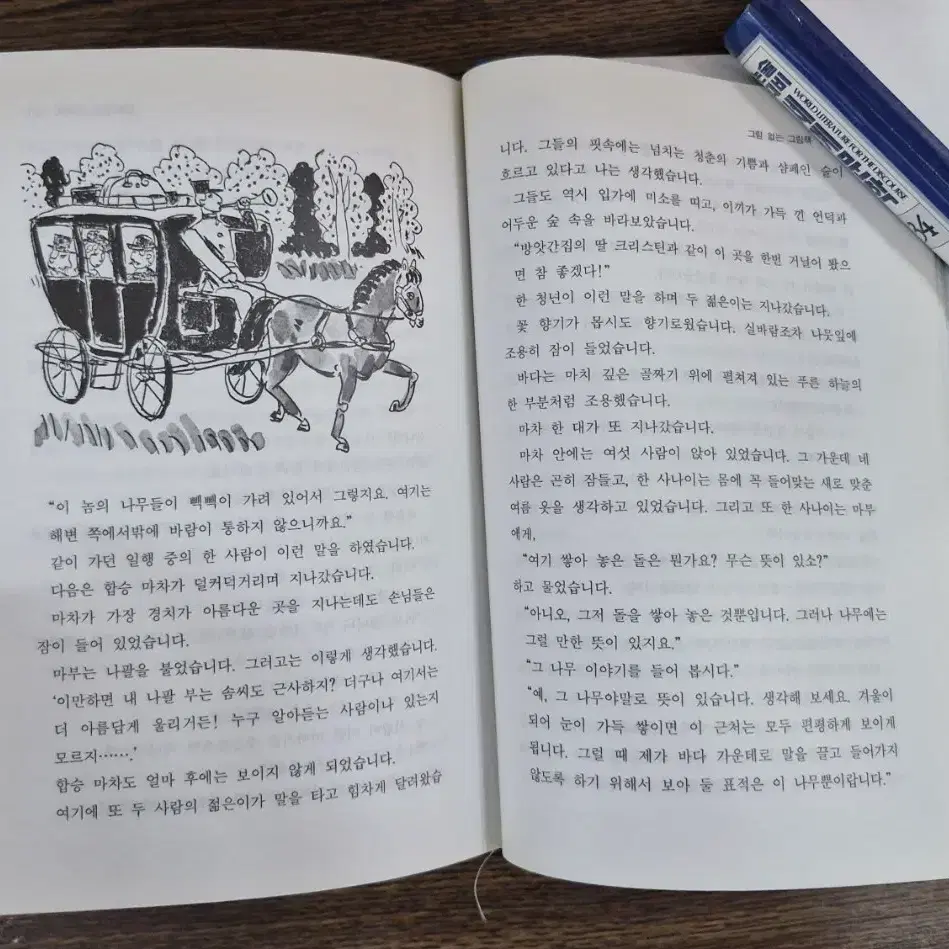 “이 놈의 나무들이 빽빽이 가려 있어서 그렇지요. 여기는
해변 쪽에서밖에 바람이 통하지 않으니까요.”
같이 가던 일행 중의 한 사람이 이런 말을 하였습니다.
다음은 합승 마차가 덜커덕거리며 지나갔습니다.
마차가 가장 경치가 아름다운 곳을 지나는데도 손님들은
잠이 들어 있었습니다.
마부는 나팔을 불었습니다. 그러고는 이렇게 생각했습니다.
‘이만하면 내 나팔 부는 솜씨도 근사하지? 더구나 여기서는
더 아름답게 울리거든! 누구 알아듣는 사람이나 있는지
모르지…….’
합승 마차도 얼마 후에는 보이지 않게 되었습니다.
여기에 또 두 사람의 젊은이가 말을 타고 힘차게 달려왔습
그림 없는 그림책
니다. 그들의 핏속에는 넘치는 청춘의 기쁨과 샴페인 술이
흐르고 있다고 나는 생각했습니다.
그들도 역시 입가에 미소를 띠고, 이끼가 가득 낀 언덕과
어두운 숲 속을 바라보았습니다.
“방앗간집의 딸 크리스틴과 같이 이 곳을 한번 거닐어 봤으
면 참 좋겠다!”
한 청년이 이런 말을 하며 두 젊은이는 지나갔습니다.
꽃 향기가 몹시도 향기로웠습니다. 실바람조차 나뭇잎에
조용히 잠이 들었습니다.
바다는 마치 깊은 골짜기 위에 펼쳐져 있는 푸른 하늘의
한 부분처럼 조용했습니다.
마차 한 대가 또 지나갔습니다.
마차 안에는 여섯 사람이 앉아 있었습니다. 그 가운데 네
사람은 곤히 잠들고, 한 사나이는 몸에 꼭 들어맞는 새로 맞춘
여름 옷을 생각하고 있었습니다. 그리고 또 한 사나이는 마부
에게,
“여기 쌓아 놓은 돌은 뭔가요? 무슨 뜻이 있소?”
하고 물었습니다.
“아니오, 그저 돌을 쌓아 놓은 것뿐입니다. 그러나 나무에는
그럴 만한 뜻이 있지요.”
“그 나무 이야기를 들어 봅시다.”
“예, 그 나무야말로 뜻이 있습니다. 생각해 보세요. 겨울이
되어 눈이 가득 쌓이면 이 근처는 모두 편평하게 보이게
됩니다. 그럴 때 제가 바다 가운데로 말을 끌고 들어가지
않도록 하기 위해서 보아 둘 표적은 이 나무뿐이랍니다.”
WORLD LITERATURE FOR THE DISCOURSE